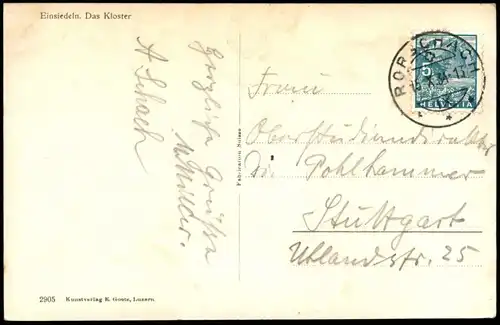 Einsiedeln. Das Kloster
Herzliche Grüsse
A Schach
Fabrication Suisse
RORSCHACH
5
HELVETIA
Frau
Oberstudiendirektor
Dr. Pohlhammer
Stuttgart
Uhlandstr. 25
2905 Kunstverlag E. Goetz, Luzern.